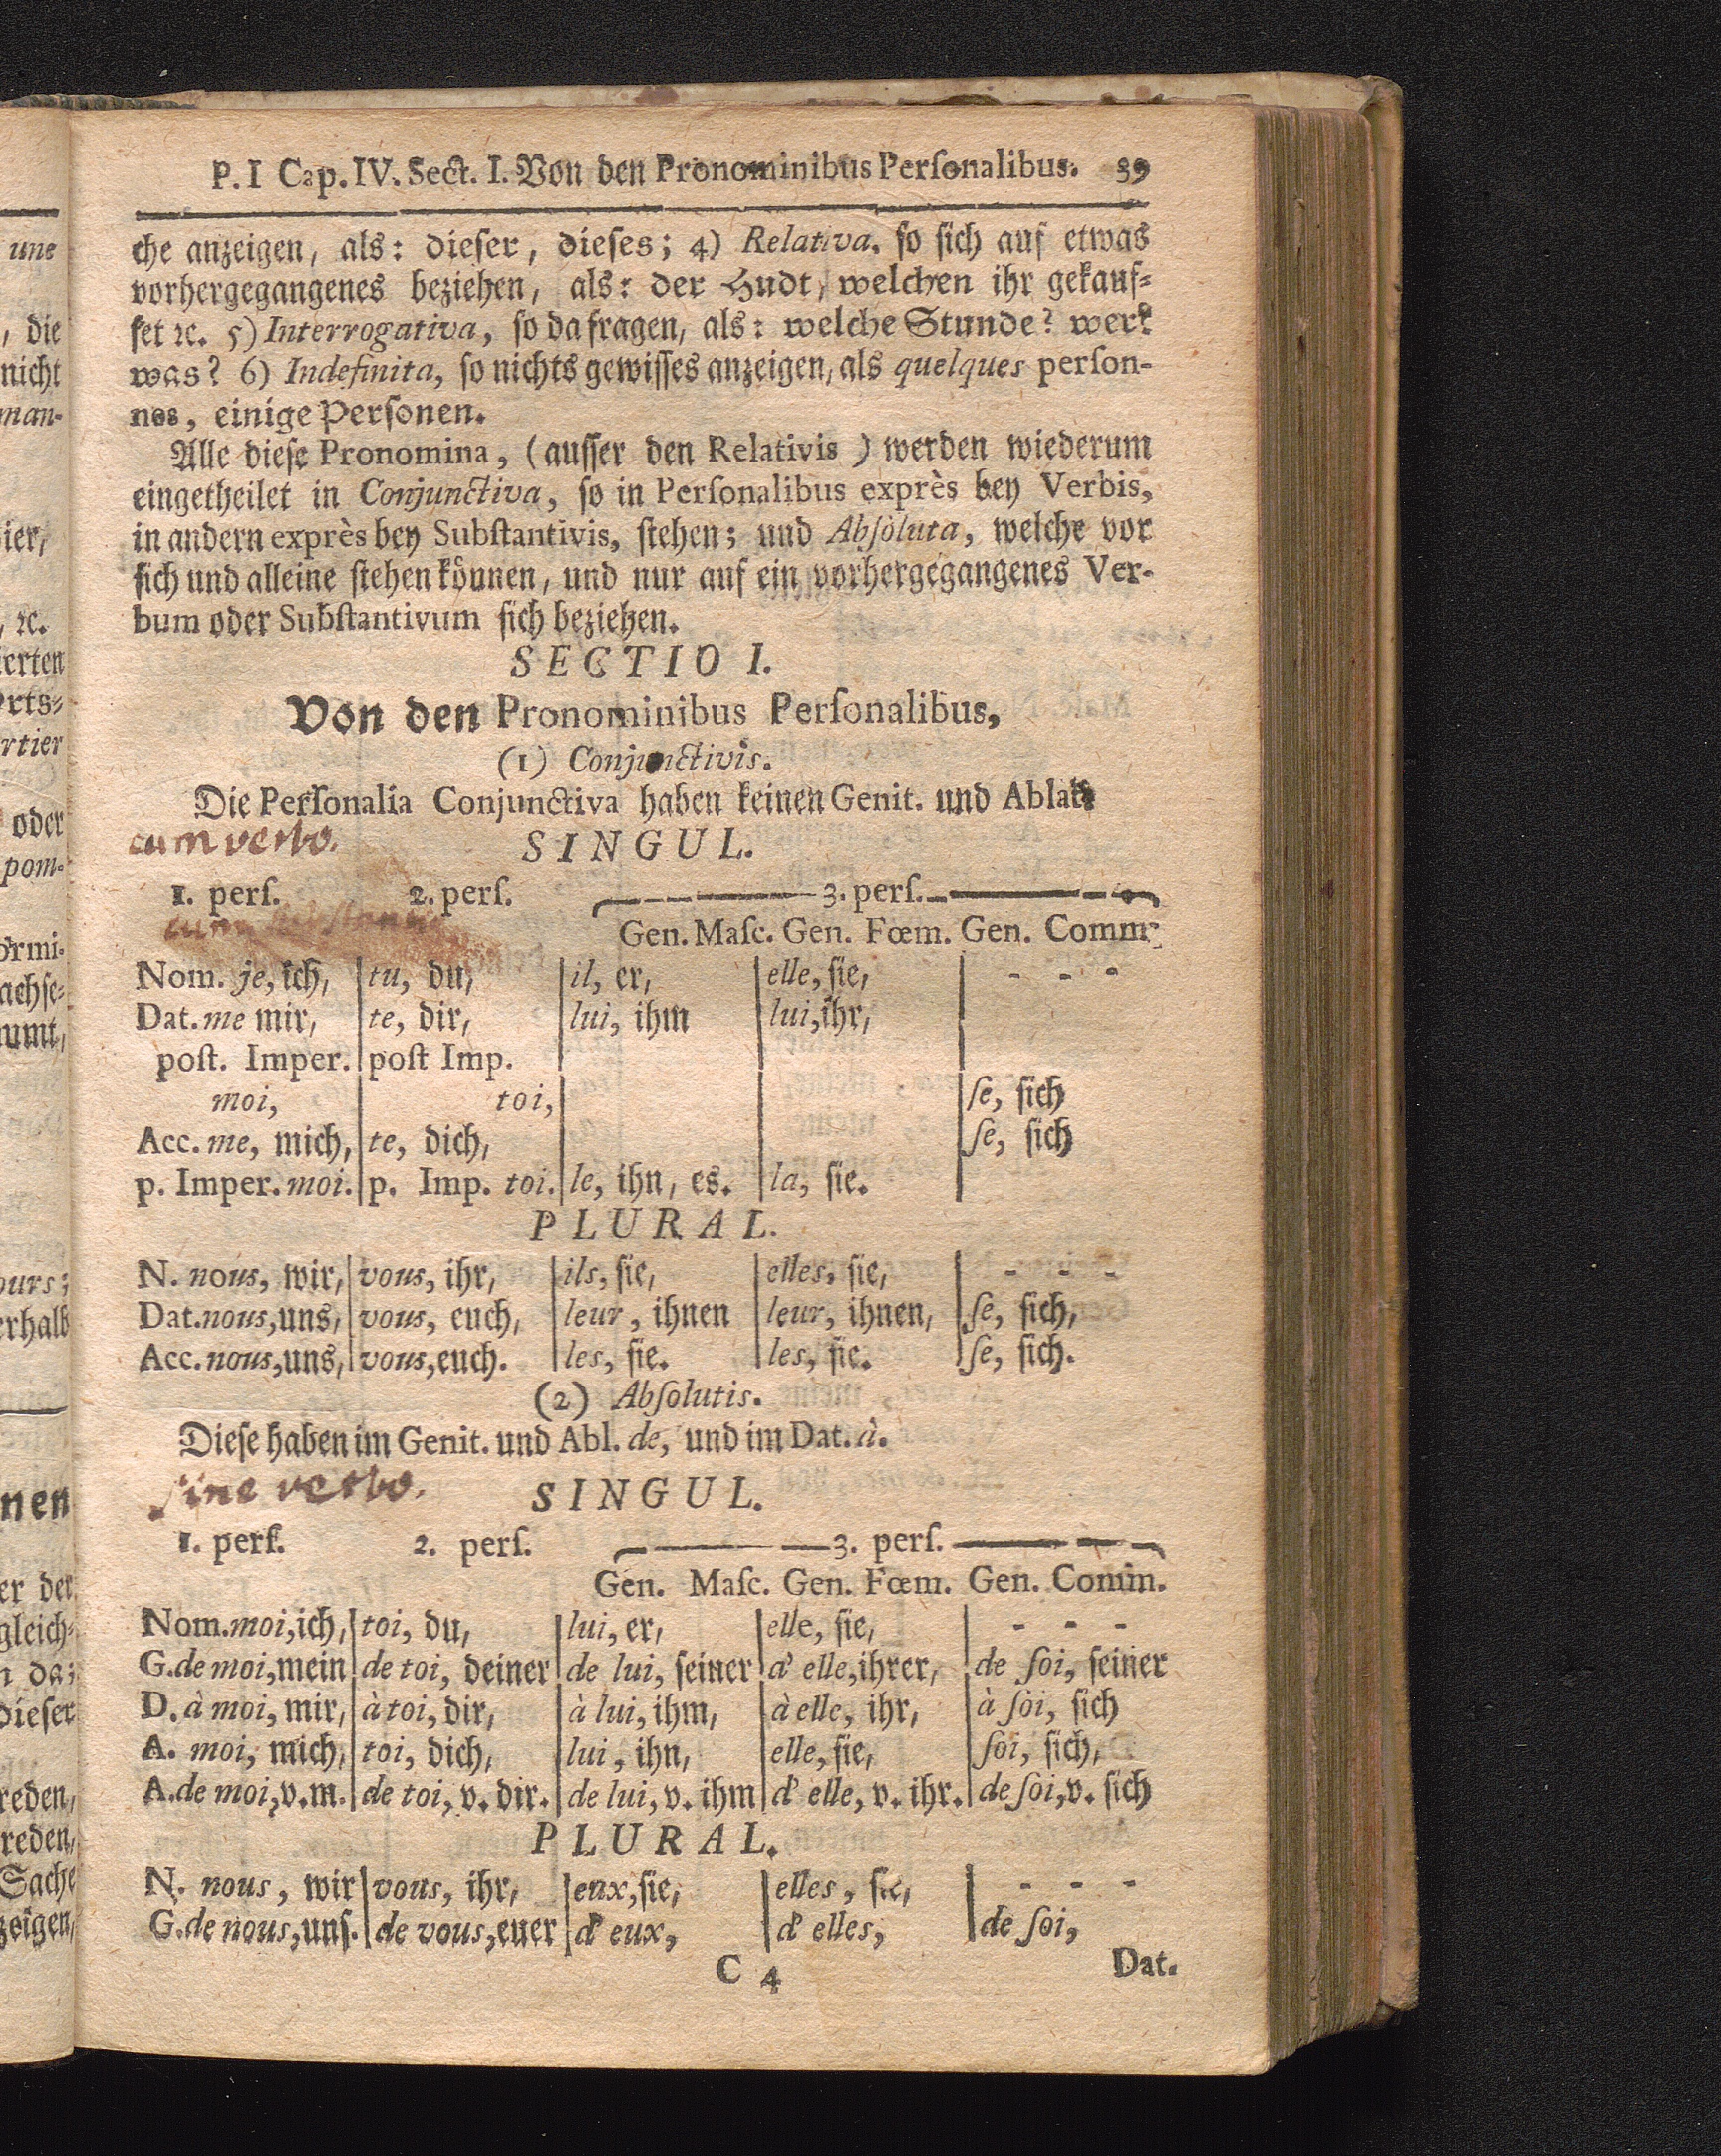 P. I Cap. IV. Sect. I. Von den Pronominibus Perſonalibus. 39
che anzeigen, als: dieſer, dieſes; 4) Relativa, ſo ſich auf etwas
vorhergegangenes beziehen, als: der Hudt, welchen ihr gekauf-
fet ꝛc. 5) Interrogativa, ſo da fragen, als: welche Stunde? wer?
was? 6) Indefinita, ſo nichts gewiſſes anzeigen, als quelques perſon-
nes, einige Perſonen.
Alle dieſe Pronomina, (auſſer den Relativis) werden wiederum
eingetheilet in Conjunctiva, ſo in Perſonalibus exprès bey Verbis,
in andern exprès bey Subſtantivis, ſtehen; und Abſoluta, welche vor
ſich und alleine ſtehen können, und nur auf ein vorhergegangenes Ver-
bum oder Subſtantivum ſich beziehen.
SECTIO I.
Von den Pronominibus Perſonalibus,
(1) Conjunctivis.
Die Perſonalia Conjunctiva haben keinen Genit. und Ablat.
cum verbo. SINGUL.
1. perſ. 2. perſ. 3. perſ.
cum
Gen. Maſc. Gen. Fœm. Gen. Comm.
Nom. je, ich, | tu, du, | il, er, | elle, ſie, | - - -
Dat. me mir, | te, dir, | lui, ihm | lui, ihr, |
poſt. Imper. | poſt Imp. | | |
moi, | toi, | | | ſe, ſich
Acc. me, mich, | te, dich, | | | ſe, ſich
p. Imper. moi. | p. Imp. toi. | le, ihn, es. | la, ſie. |
PLURAL.
N. nous, wir, | vous, ihr, | ils, ſie, | elles, ſie, | - - -
Dat. nous, uns, | vous, euch, | leur, ihnen | leur, ihnen, | ſe, ſich,
Acc. nous, uns, | vous, euch. | les, ſie. | les, ſie. | ſe, ſich.
(2) Abſolutis.
Dieſe haben im Genit. und Abl. de, und im Dat. à.
ſine verbo. SINGUL.
1. perſ. 2. perſ. 3. perſ.
Gen. Maſc. Gen. Fœm. Gen. Comm.
Nom. moi, ich, | toi, du, | lui, er, | elle, ſie, | - - -
G. de moi, mein | de toi, deiner | de lui, ſeiner | d' elle, ihrer, | de ſoi, ſeiner
D. à moi, mir, | à toi, dir, | à lui, ihm, | à elle, ihr, | à ſoi, ſich
A. moi, mich, | toi, dich, | lui, ihn, | elle, ſie, | ſoi, ſich,
A. de moi, v. m. | de toi, v. dir. | de lui, v. ihm | d' elle, v. ihr. | de ſoi, v. ſich
PLURAL.
N. nous, wir | vous, ihr, | eux, ſie, | elles, ſie, | - - -
G. de nous, unſ. | de vous, euer | d' eux, | d' elles, | de ſoi,
C 4 Dat.